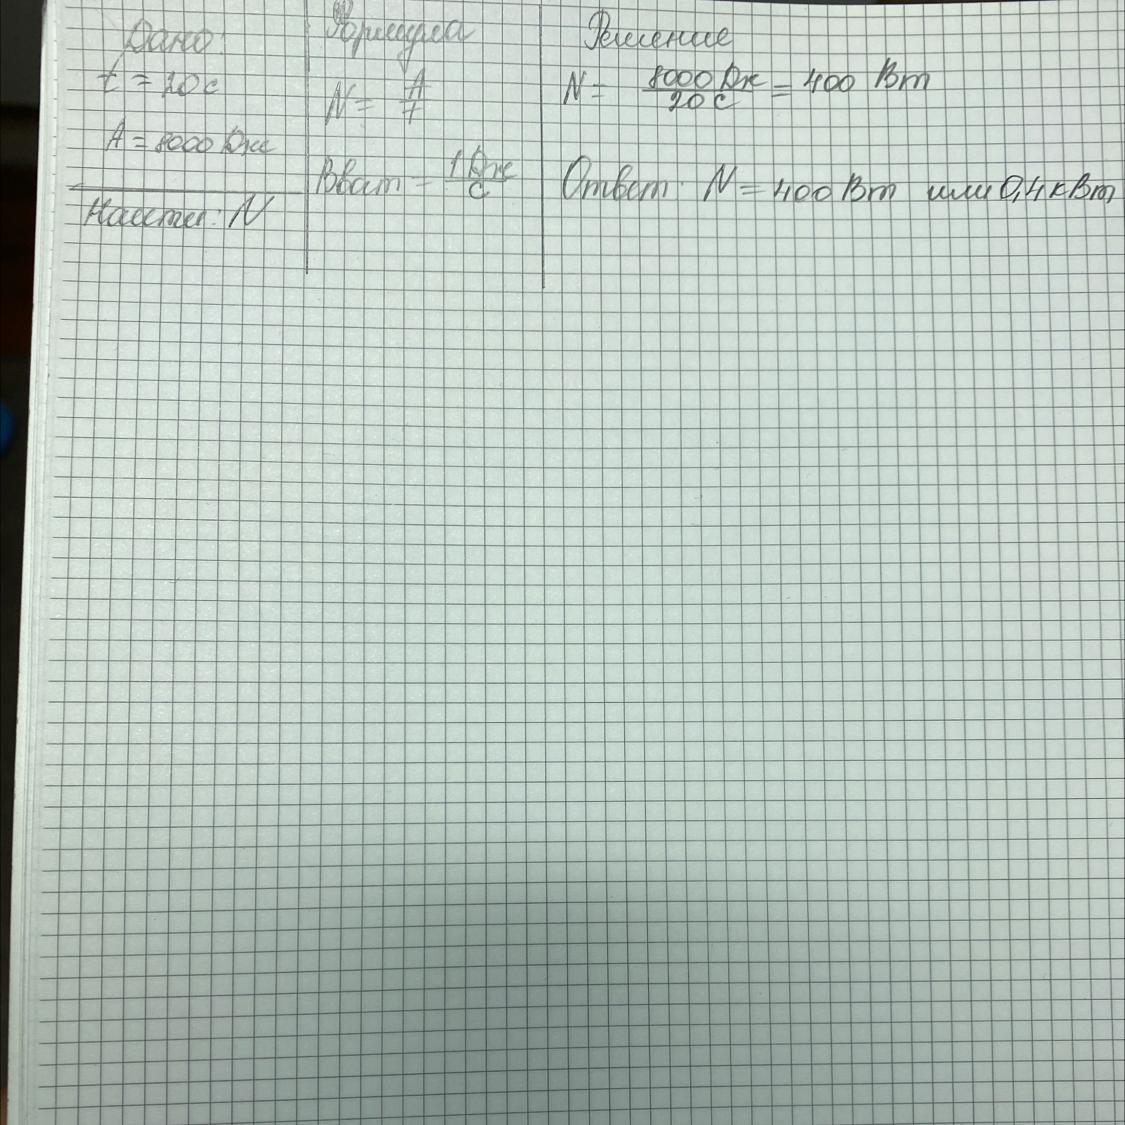 Дано:
t = 20 с
A = 8000 Дж
Найти: N
Формула
N = A/t
1 Дж/с
Решение
N = 8000 Дж/20 с = 400 Вт
Ответ: N = 400 Вт или 0,4 кВт